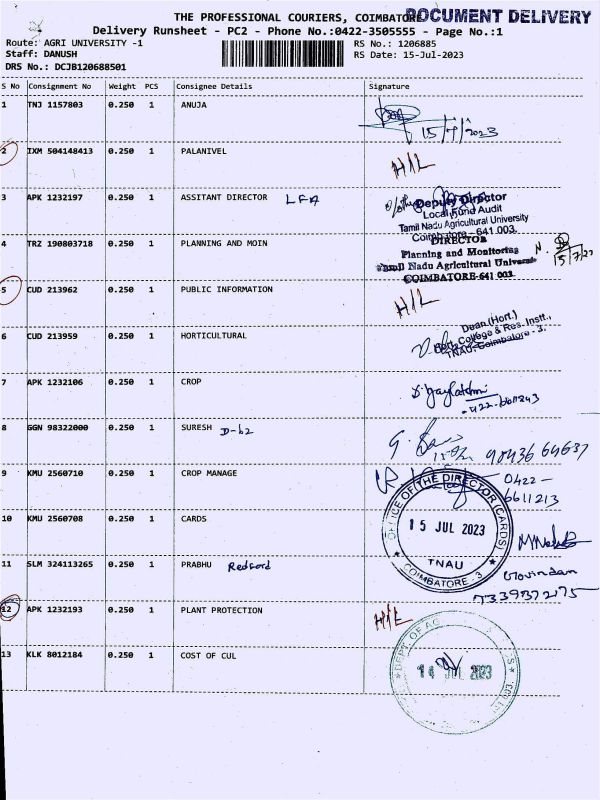 THE PROFESSIONAL COURIERS, COIMBATORE
DOCUMENT DELIVERY
Delivery Runsheet - PC2 - Phone No.:0422-3505555 - Page No.:1
Route: AGRI UNIVERSITY -1 RS No.: 1206885
Staff: DANUSH RS Date: 15-Jul-2023
DRS No.: DCJB120688501
S No Consignment No Weight PCS Consignee Details Signature
1 TNJ 1157803 0.250 1 ANUJA
15/7/2023
2 IXM 504148413 0.250 1 PALANIVEL H/L
3 APK 1232197 0.250 1 ASSITANT DIRECTOR LFA
Deputy Director
Local Fund Audit
Tamil Nadu Agricultural University
Coimbatore - 641 003.
4 TRZ 190803718 0.250 1 PLANNING AND MOIN
DIRECTOR
Planning and Monitoring
Tamil Nadu Agricultural University
COIMBATORE-641 003
15/7/23
5 CUD 213962 0.250 1 PUBLIC INFORMATION H/L
6 CUD 213959 0.250 1 HORTICULTURAL
Dean (Hort.)
Hort. College & Res. Instt.,
TNAU, Coimbatore - 3.
7 APK 1232106 0.250 1 CROP
8 GGN 98322000 0.250 1 SURESH D-62
9 KMU 2560710 0.250 1 CROP MANAGE
0422-
6611213
10 KMU 2560708 0.250 1 CARDS
OFFICE OF THE DIRECTOR (CARDS)
15 JUL 2023
TNAU
COIMBATORE - 3
11 SLM 324113265 0.250 1 PRABHU Redford
Govindan
7339372175
12 APK 1232193 0.250 1 PLANT PROTECTION H/L
13 KLK 8012184 0.250 1 COST OF CUL
DEPT. OF AG
14 JUL 2023